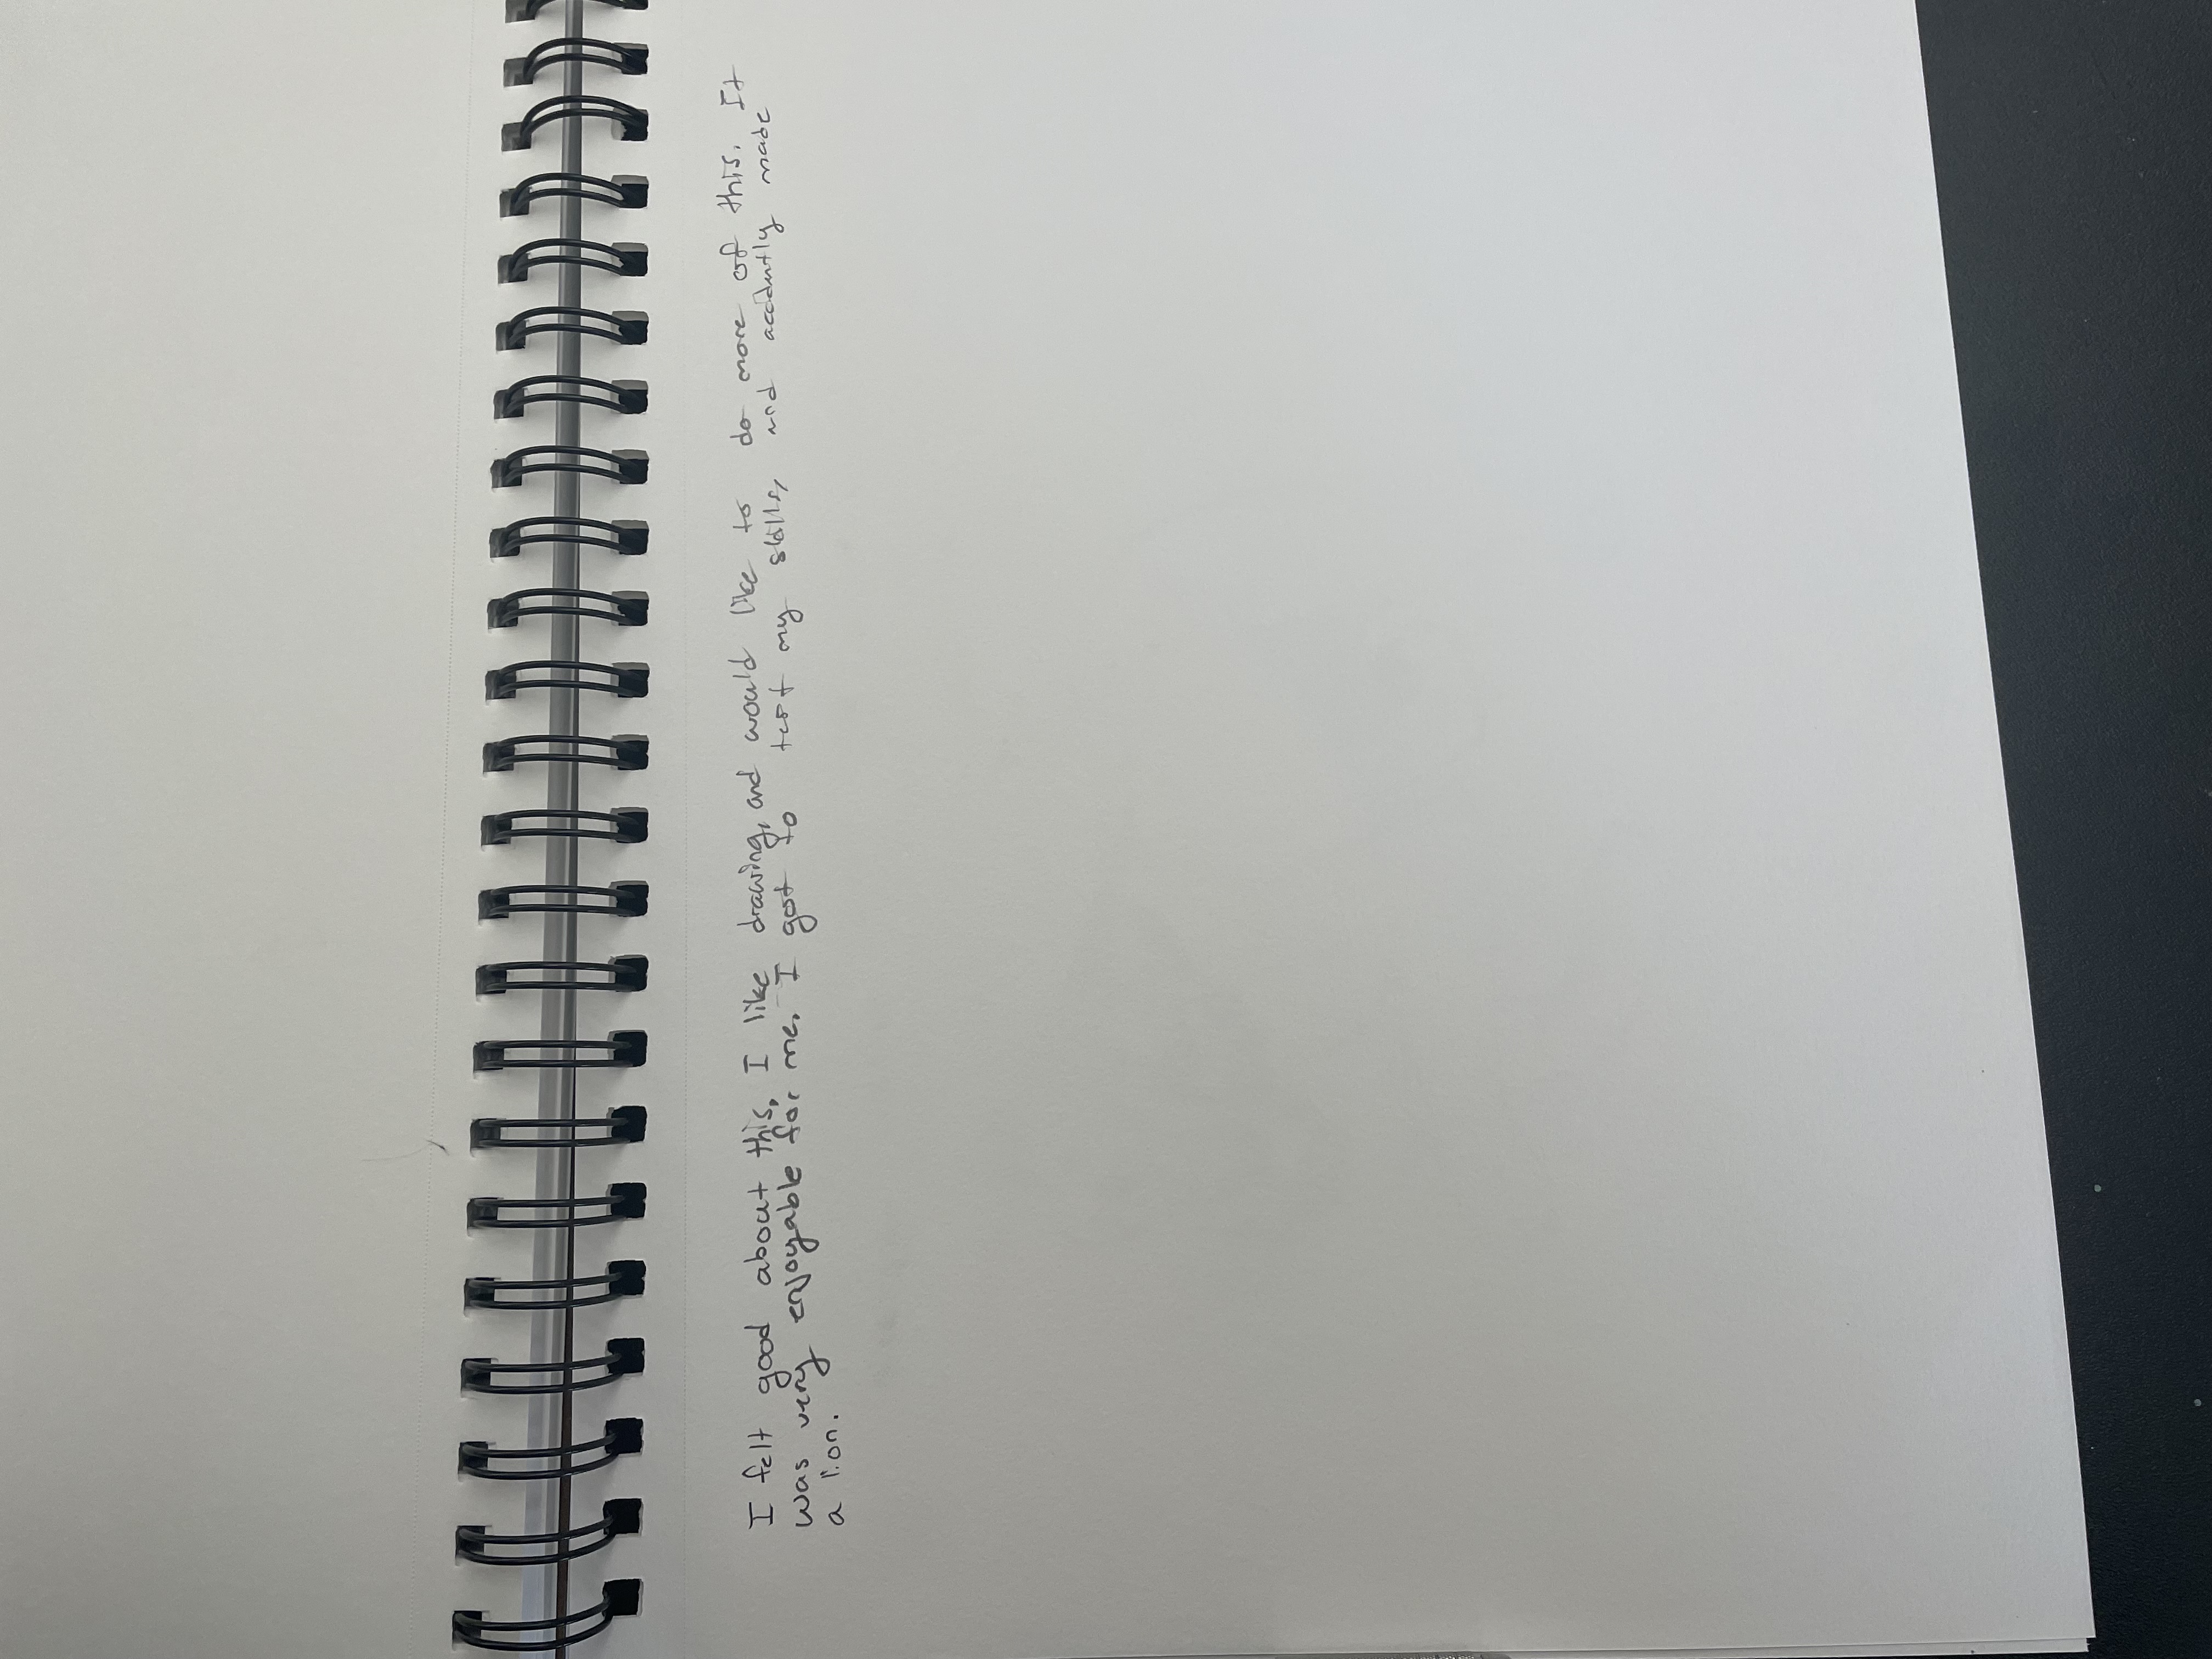 I felt good about this. I like drawing, and would like to do more of this. It
was very enjoyable for me. I got to test my skills, and accidntly made
a lion.